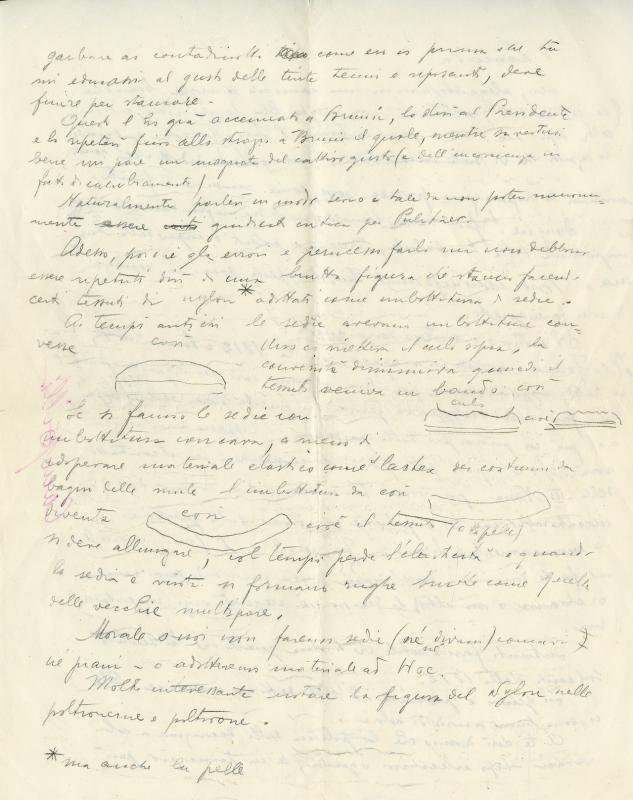 garbare ai contadinotti come ero io prima che tu
mi educassi al gusto delle tinte tenui e riposanti, deve
finire per stancare.
Questo l'ho già accennato a Brunis, lo dirò al Presidente
e lo ripeterò fino allo strazio a Brunis il quale, mentre
bene mi pare un magnate del cattivo gusto (e dell'incoerenza in
fatto di
Naturalmente parlerò in modo serio e tale da non poter menoma-
mente essere giudicato critica per Pulitzer.
Adesso, poichè gli errori è permesso farli ma non debbono
essere ripetuti dirò di una brutta figura che stanno facendo
certi tessuti di nylon * adottati come imbottitura di sedie.
Ai tempi antichi le sedie avevano imbottiture con-
vesse così
Uno ci metteva il culo sopra, la
convessità diminuiva quindi il
tessuto veniva in bando così
culo
cioè
Se si fanno le sedie con
imbottitura concava, a meno di
adoperare materiale elastico come il lastex dei costumi da
bagno delle mule l'imbottitura da così
diventa così cioè il tessuto (o la pelle)
si deve allungare, col tempo perde l'elasticità e quando
la sedia è vuota si formano rughe brutte come quelle
delle vecchie multipare.
Morale o noi non faremo sedie (nè divani) concavi
nè piani - o adotteremo materiale ad Hoc.
Molto interessante notare la figura del Nylon nelle
poltroncine e poltrone.
* ma anche la pelle